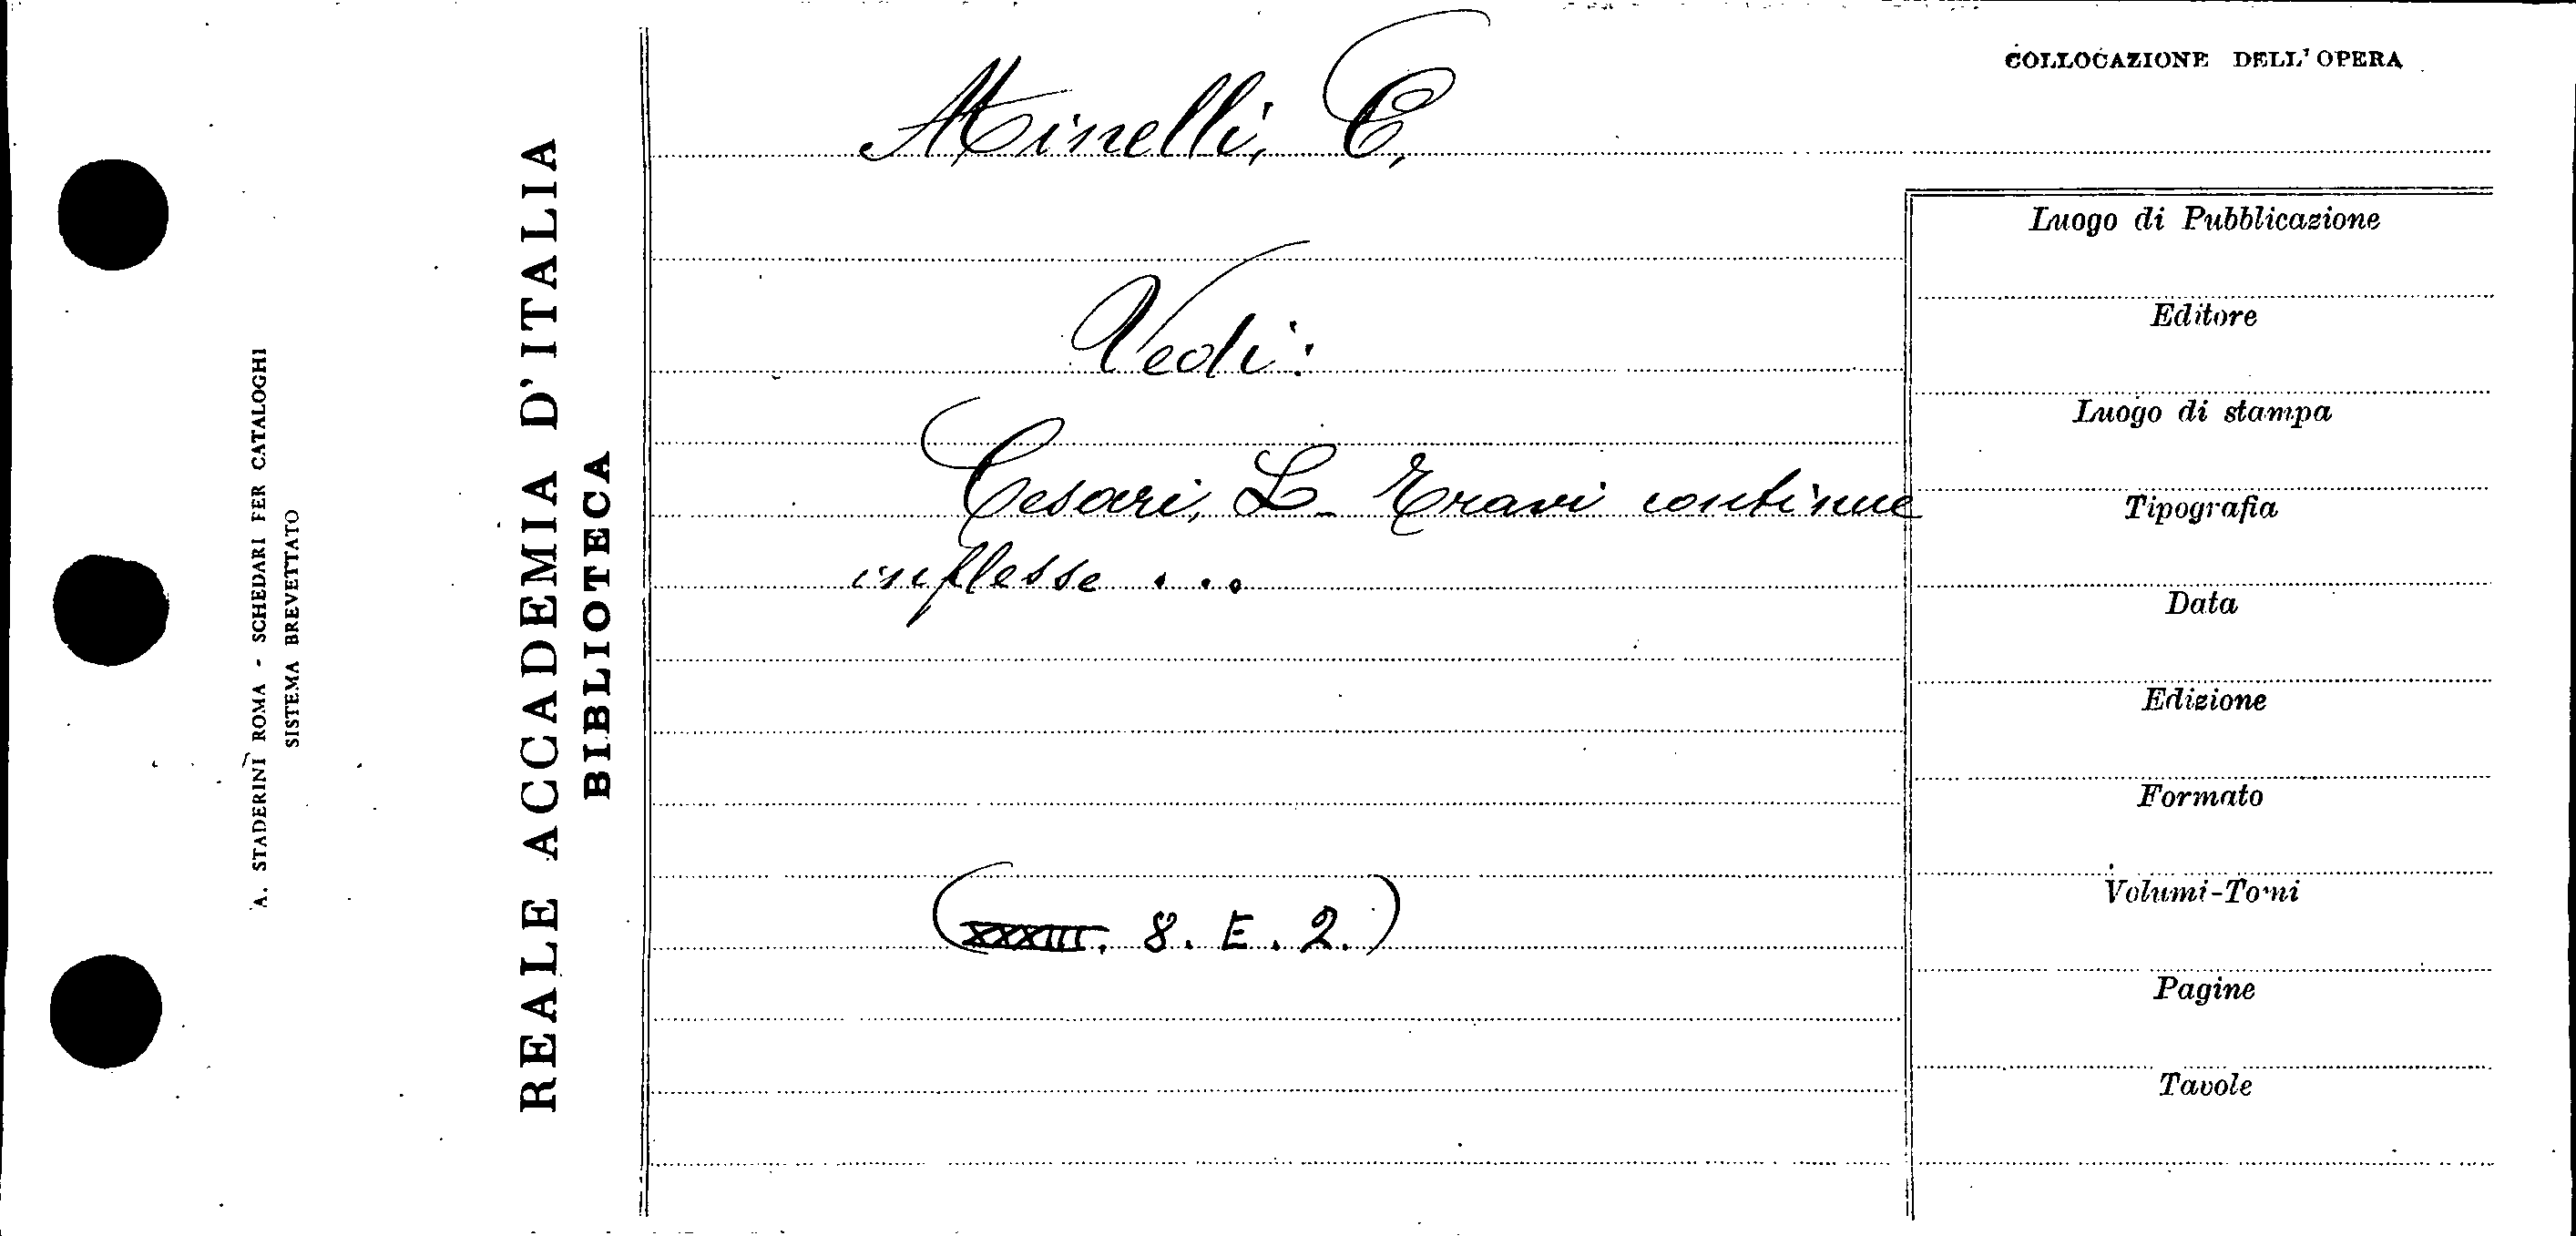 A. STADERINI ROMA - SCHEDARI PER CATALOGHI
SISTEMA BREVETTATO
REALE ACCADEMIA D'ITALIA
BIBLIOTECA
Minelli, C.
Vedi:
Cesari, L. Travi continue
inflesse ...
(XXXIII. 8. E. 2.)
COLLOCAZIONE DELL'OPERA
Luogo di Pubblicazione
Editore
Luogo di stampa
Tipografia
Data
Edizione
Formato
Volumi-Tomi
Pagine
Tavole